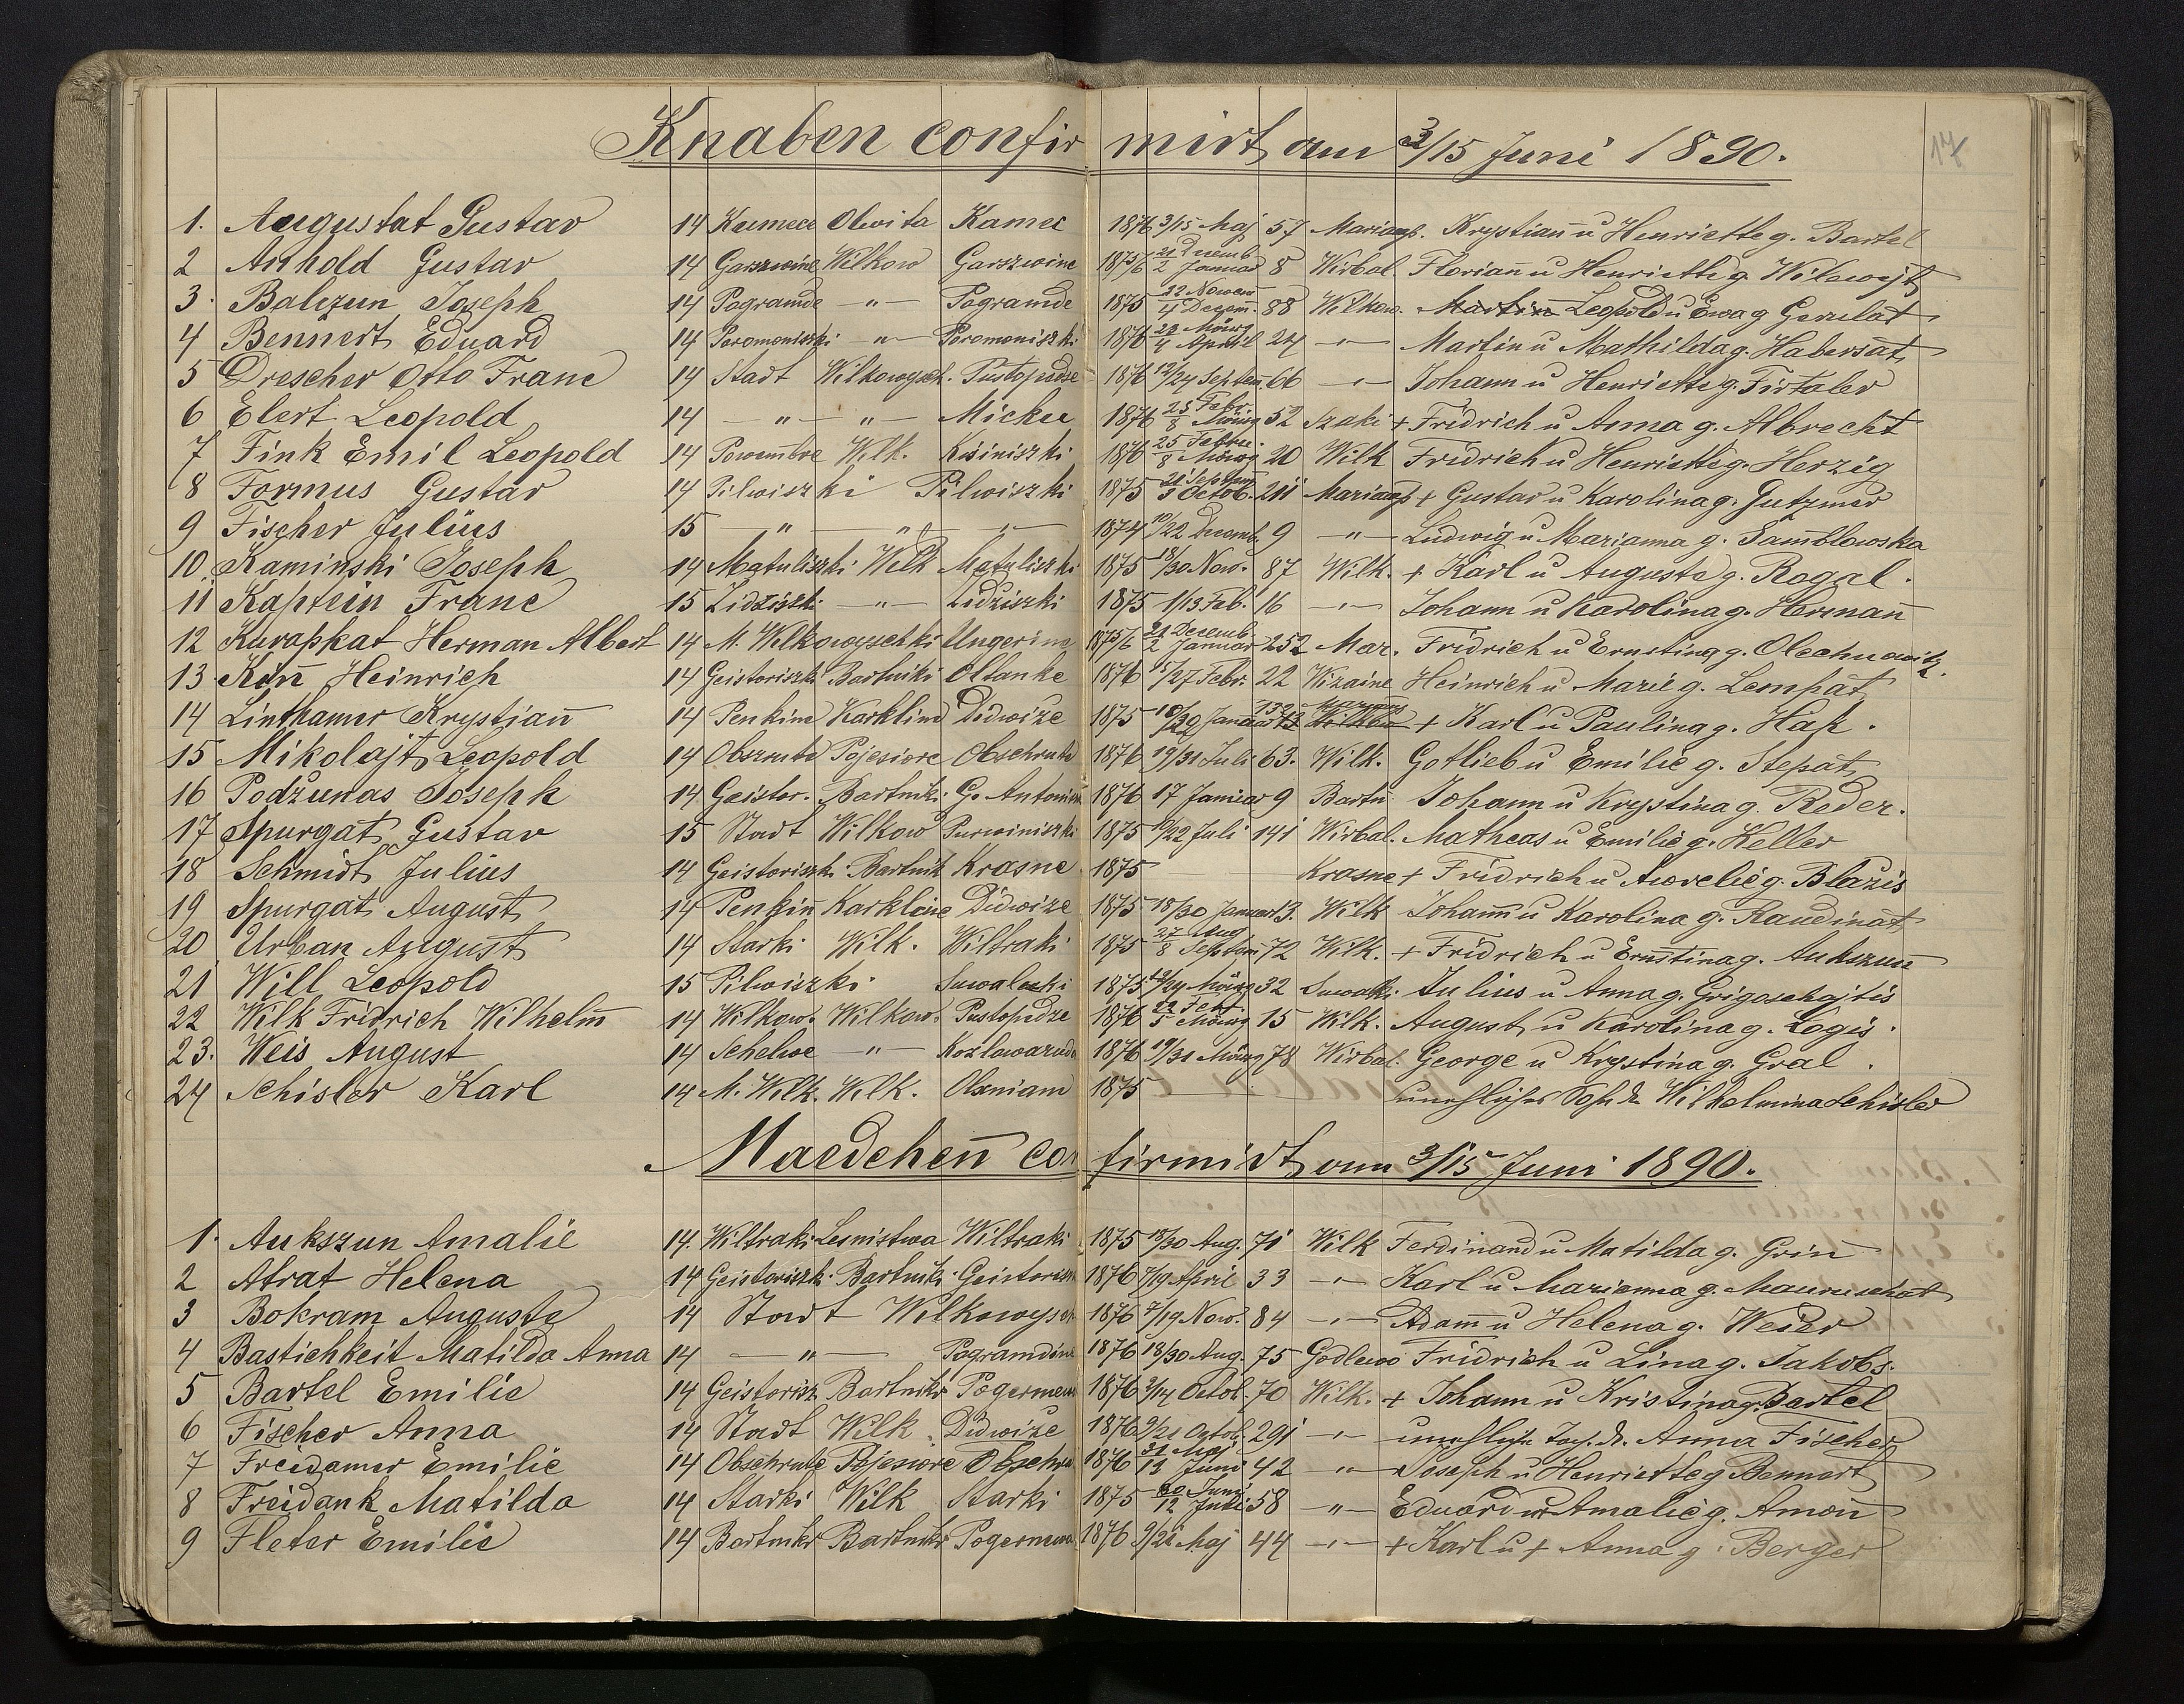 Knaben confirmirt am 3/15 Juni 1890.
17
1. Augustat Gustav 14 Kumece Olwita Kamec 1876 3/15 Maj 57 Mariamp. Krystian̄ u Henriette g. Bartel
2 Arnhold Gustav 14 Garszwine Wilkow Garszwine 1875/6 21 Decemb 2 Januar 8 Wirbal Florian̄ u Henriette g. Wilawejt
3. Balczun Joseph 14 Pogramde —"— Pogramde 1875 22 Novem 4 Decem̄. 88 Wilkow. Martin Leopold u Ewa g Gerulat
4 Bennert Eduard 14 Poromoniszki —"— Poromoniszki 1876 23 März 4 April 24 —"— Martin u Mathilda g. Habersat
5 Drescher Otto Franc 14 Stadt Wilkowysch. Pustopedze 1876 12/24 Septem̄. 66 —"— Johann u Henriette g. Firtaler
6 Elert Leopold 14 —"— —"— Mickee 1876 25 Febr. 8 März 52 Szaki + Fridrich u Anna g. Albrecht
7 Fink Emil Leopold 14 Powem̄bre Wilk. Kisiniszki 1876 25 Febru. 8 März 20 Wilk Fridrich u Henriette g. Herzig
8 Formus Gustav 14 Pilwiszki Pilwiszki 1875 21 Septem̄ 3 Octob. 211 Mariamp + Gustav u Karolina g. Gutzmer
9 Fischer Julius 15 —"— —"— —"— 1874 10/22 Decemb. 9 —"— Ludwig u Marianna g. Sam̄blowska
10. Kaminski Joseph 14 Matuliszki Wilk Matuliszki 1875 18/30 Nov. 87 Wilk. + Karl u Auguste g. Rogal.
11 Kaptein Franc 15 Lidziszki —"— Lidziszki 1875 1/13 Feb. 16 —"— Johann u Karolina g. Herman̄
12 Kurapkat Herman Albert 14 M. Wilkowyschki Ungerine 1875/6 21 Decemb. 2 Januar 252 Mar. Fridrich u Ernstina g. Olechnowitz.
13 Kin̄ Heinrich 14 Geistoriszki Bartniki Oltanke 1876 15/27 Febr. 22 Wizaine Heinrich u Marie g. Lempat
14 Linthamer Krystian̄ 14 Penkine Karkline Didwize 1875 18/30 Januar 132 Mariamp + Karl u Paulina g. Hak.
15 Mikolajt Leopold 14 Obszrute Pojesiore Obschrute 1876 19/31 Juli 63. Wilk. Gotlieb u Emilie g. Stepat
16 Podžunas Joseph 14 Geistor. Bartnik. G. Antonien 1876 17 Januar 9 Bartn. Johann u Krystina g. Reder.
17 Spurgat Gustav 15 Stadt Wilkow Purwiniszki 1875 10/22 Juli 141 Wirbal. Matheas u Emilie g. Keller
18 Schmidt Julius 14 Geistoriszk. Bartnik Krasne 1875 Krasne + Fridrich u Aurelie g. Blazis
19 Spurgat August 14 Penkin̄ Karkleine Didwize 1875 18/30 Januar 13. Wilk Johan̄ u Karolina g. Raudinat
20 Urban August 14 Starki Wilk. Wiltraki 1875 27 Aug 8 Septem̄ 72 Wilk. + Fridrich u Ernstina g. Aukszun
21 Will Leopold 15 Pilwiszki Suwalecki 1875 12/24 März 32 Suwalk. Julius u Anna g. Grigoschajtis
22 Wilk Fridrich Wilhelm̄ 14 Wilkow. Wilkow. Pustopedze 1876 22 Febr. 5 März 15 Wilk. August u Karolina g. Logis.
23. Weis August 14 Schelwe —"— Kozlowaruda 1876 19/31 März 78 Wirbal. George u Krystina g. Gral.
24 Schisler Karl 14 M. Wilk. Wilk. Olxniam 1875 — unehlicher Sohn d. Wilhelmina Schisler
Maedchen̄ confirmirt am 3/15 Juni 1890.
1. Aukszun Amalie 14. Wiltraki Lesnistwa Wiltraki 1875 18/30 Aug. 71 Wilk Ferdinand u Matilda g. Grin̄
2 Atrat Helena 14 Geistoriszk. Bartnik. Geistorisz 1876 7/19 April 33 —"— Karl u Marianna g. Mauruschat
3 Bokram Auguste 14 Stadt Wilkowysch 1876 7/19 Nov. 84 —"— Adam̄ u Helena g. Weier
4 Bastichkeit Matilda Anna 14 —"— Pogramdine 1876 18/30 Aug. 75 Godlewo Fridrich u Lina g. Jakobs.
5 Bartel Emilie 14 Geistorisz. Bartnikr Pogermen 1876 2/14 Octob. 70 Wilk. + Johann u Kristina g. Bartel
6 Fischer Anna 14 Stadt Wilk. Didwize 1876 9/21 Octob. 291 —"— unehliche Toch. d. Anna Fischer
7 Freidamer Emilie 14 Obschrute Pojesiore Obschru 1876 31 Maj 12 Juni 42 —"— Joseph u Henriette g Bennert
8 Freidank Matilda 14 Starki Wilk Starki 1875 30 Juni 12 Juli 58 —"— Eduard u Amalie g. Amon̄
9 Fleter Emilie 14 Bartnikr Bartnikr Pogermen 1876 9/21 Maj 44 —"— + Karl u + Anna g. Berger